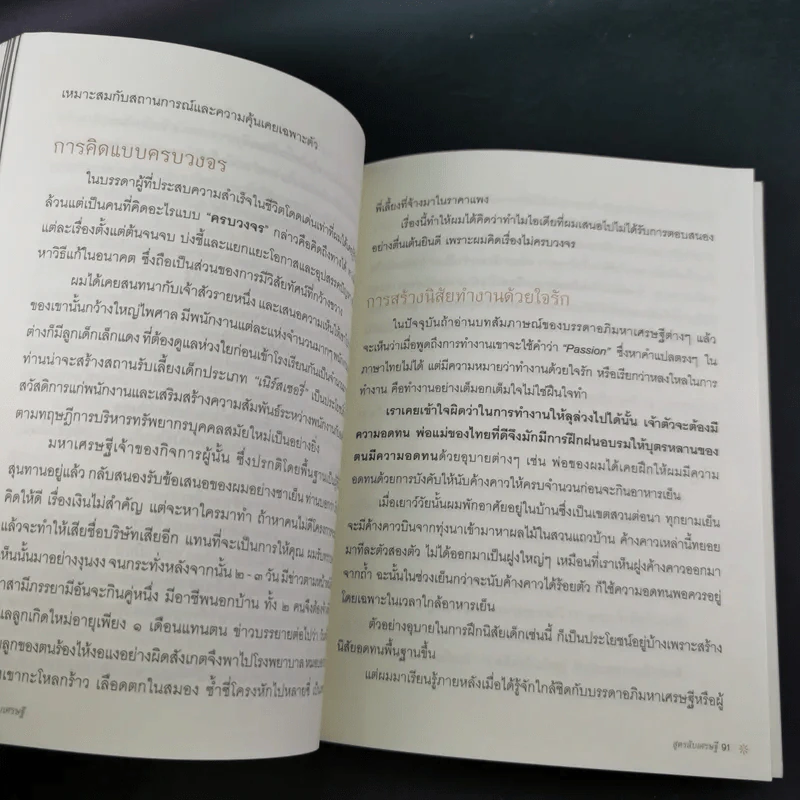 เหมาะสมกับสถานการณ์และความคุ้นเคยเฉพาะตัว
การคิดแบบครบวงจร
ในบรรดาผู้ที่ประสบความสำเร็จในชีวิตโดดเด่นเท่าที่ผมได้
ล้วนแต่เป็นคนที่คิดอะไรแบบ “ครบวงจร” กล่าวคือคิดถึงทางได้
แต่ละเรื่องตั้งแต่ต้นจนจบ บ่งชี้และแยกแยะโอกาสและอุปสรรค
หาวิธีแก้ในอนาคต ซึ่งถือเป็นส่วนของการมีวิสัยทัศน์ที่กว้างขวาง
ผมได้เคยสนทนากับเจ้าสัวรายหนึ่ง และเสนอความเห็น
ของเขานั้นกว้างใหญ่ไพศาล มีพนักงานแต่ละแห่งจำนวนมากๆ
ต่างก็มีลูกเด็กเล็กแดง ที่ต้องดูแลห่วงใยก่อนเข้าโรงเรียนกันเป็น
ท่านน่าจะสร้างสถานรับเลี้ยงเด็กประเภท “เนิร์สเซอรี่”
สวัสดิการแก่พนักงานและเสริมสร้างความสัมพันธ์ระหว่างพนักงาน
ตามทฤษฎีการบริหารทรัพยากรบุคคลสมัยใหม่เป็นอย่างยิ่ง
มหาเศรษฐีเจ้าของกิจการผู้นั้น ซึ่งปรกติโดยพื้นฐาน
สุนทานอยู่แล้ว กลับสนองรับข้อเสนอของผมอย่างชาเย็น
คิดให้ดี เรื่องเงินไม่สำคัญ แต่จะหาใครมาทำ ถ้าหาคนไม่ดี
แล้วจะทำให้เสียชื่อบริษัทเสียอีก แทนที่จะเป็นการให้คุณ
เห็นนั้นมาอย่างงุนงง จนกระทั่งหลังจากนั้น ๒ - ๓ วัน มีข่าว
สามีภรรยามีอันจะกินคู่หนึ่ง มีอาชีพนอกบ้าน ทั้ง ๒ คน
แลลูกเกิดใหม่อายุเพียง ๑ เดือนแทนตน ข่าวบรรยายต่อไปว่า
ลูกของตนร้องไห้งอแงอย่างผิดสังเกตจึงพาไปโรงพยาบาล
เขากะโหลกร้าว เลือดตกในสมอง ซ้ำซี่โครงหักไปหลายซี่
เศรษฐี
พี่เลี้ยงที่จ้างมาในราคาแพง
เรื่องนี้ทำให้ผมได้คิดว่าทำไมไอเดียที่ผมเสนอไปไม่ได้รับการตอบสนอง
อย่างตื่นเต้นยินดี เพราะผมคิดเรื่องไม่ครบวงจร
การสร้างนิสัยทำงานด้วยใจรัก
ในปัจจุบันถ้าอ่านบทสัมภาษณ์ของบรรดาอภิมหาเศรษฐีต่างๆ แล้ว
จะเห็นว่าเมื่อพูดถึงการทำงานเขาจะใช้คำว่า “Passion” ซึ่งหาคำแปลตรงๆ ใน
ภาษาไทยไม่ได้ แต่มีความหมายว่าทำงานด้วยใจรัก หรือเรียกว่าหลงไหลในการ
ทำงาน คือทำงานอย่างเต็มอกเต็มใจไม่ใช่ฝืนใจทำ
เราเคยเข้าใจผิดว่าในการทำงานให้ลุล่วงไปได้นั้น เจ้าตัวจะต้องมี
ความอดทน พ่อแม่ของไทยที่ดีจึงมักมีการฝึกฝนอบรมให้บุตรหลานของ
ตนมีความอดทนด้วยอุบายต่างๆ เช่น พ่อของผมได้เคยฝึกให้ผมมีความ
อดทนด้วยการบังคับให้นับค้างคาวให้ครบจำนวนก่อนจะกินอาหารเย็น
เมื่อเยาว์วัยนั้นผมพักอาศัยอยู่ในบ้านซึ่งเป็นเขตสวนต่อนา ทุกยามเย็น
จะมีค้างคาวบินจากทุ่งนาเข้ามาหาผลไม้ในสวนแถวบ้าน ค้างคาวเหล่านี้ทยอย
มาทีละตัวสองตัว ไม่ได้ออกมาเป็นฝูงใหญ่ๆ เหมือนที่เราเห็นฝูงค้างคาวออกมา
จากถ้ำ ฉะนั้นในช่วงเย็นกว่าจะนับค้างคาวได้ร้อยตัว ก็ใช้ความอดทนพอควรอยู่
โดยเฉพาะในเวลาใกล้อาหารเย็น
ตัวอย่างอุบายในการฝึกนิสัยเด็กเช่นนี้ ก็เป็นประโยชน์อยู่บ้างเพราะสร้าง
นิสัยอดทนพื้นฐานขึ้น
แต่ผมมาเรียนรู้ภายหลังเมื่อได้รู้จักใกล้ชิดกับบรรดาอภิมหาเศรษฐีหรือผู้
สูตรลับเศรษฐี 91